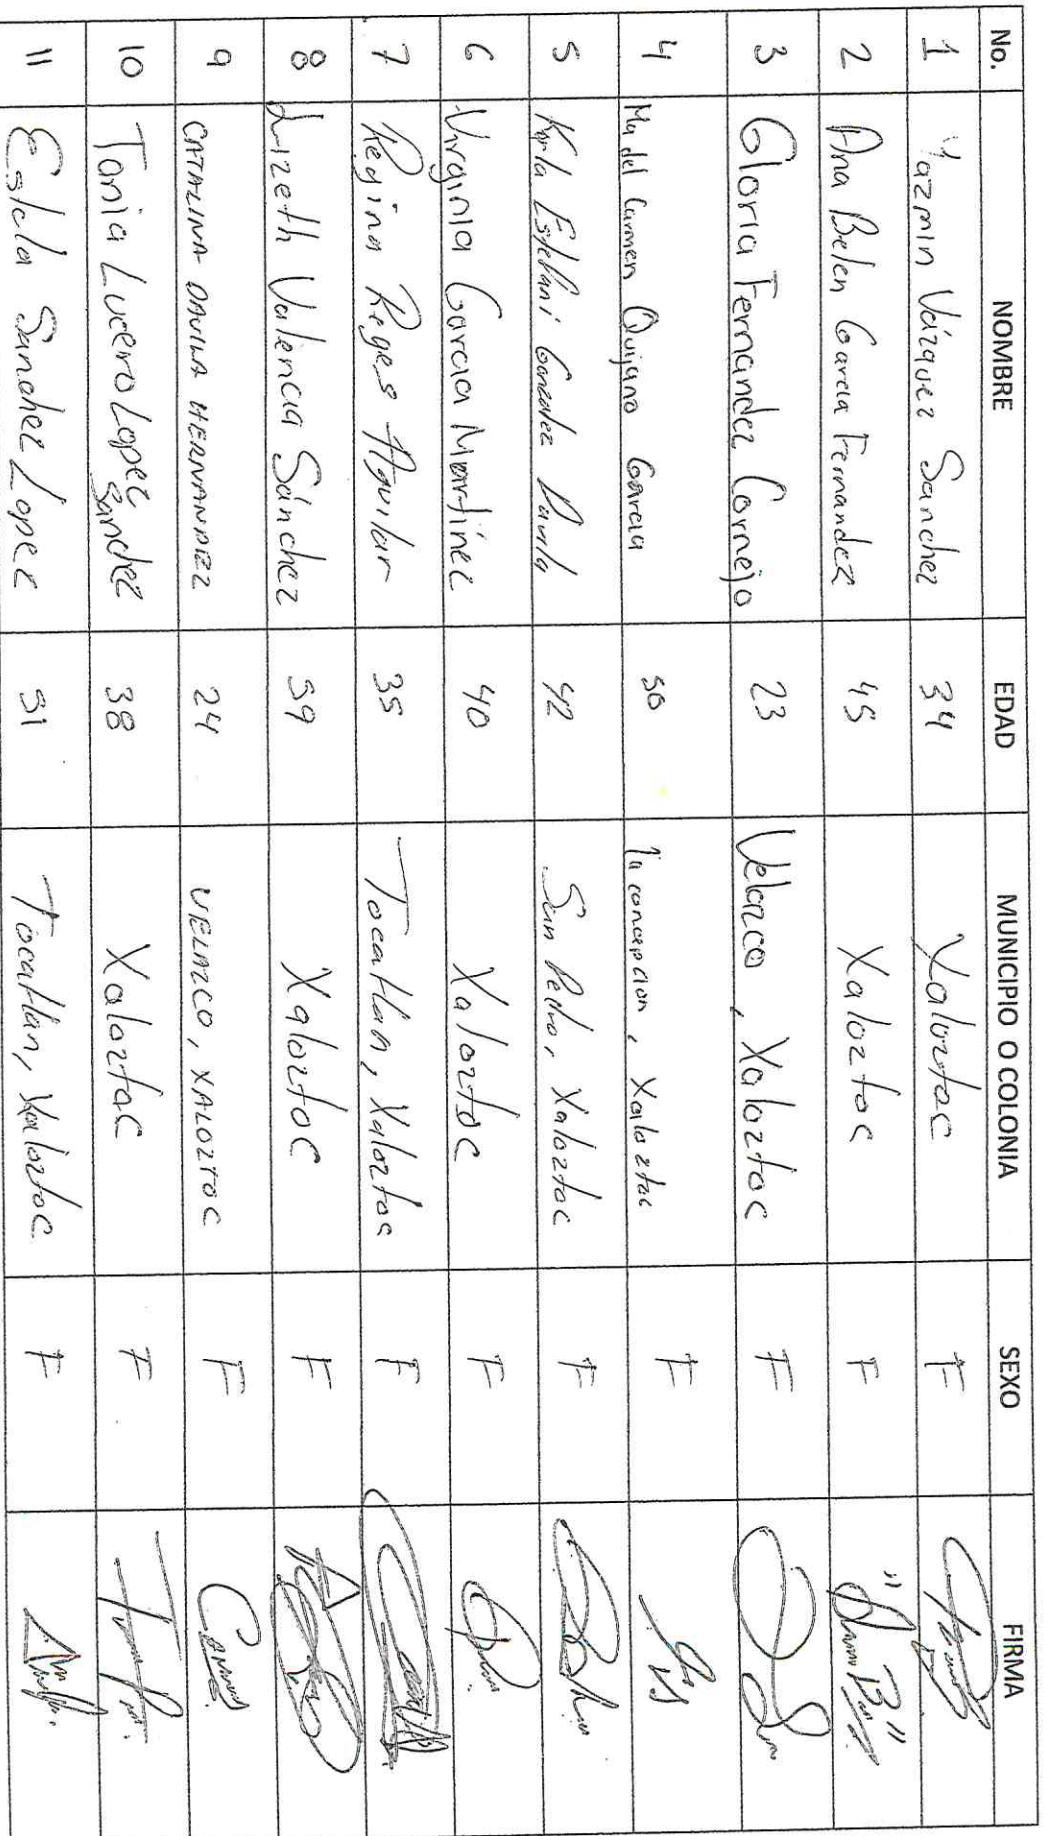 No. NOMBRE EDAD MUNICIPIO O COLONIA SEXO FIRMA
1 Yazmin Vázquez Sanchez 34 Xaloztoc F
2 Ana Belen Garcia Fernandez 45 Xaloztoc F
3 Gloria Fernandez Cornejo 23 Velazco, Xaloztoc F
4 Ma del Carmen Quijano Garcia 50 la concepcion, Xaloztoc F
5 Karla Estefani Gonzalez Davila 42 San Pedro, Xaloztoc F
6 Virginia Garcia Martinez 40 Xaloztoc F
7 Regina Reyes Aguilar 35 Tocatlan, Xaloztoc F
8 Lizeth Valencia Sánchez 59 Xaloztoc F
9 CATALINA DAVILA HERNANDEZ 24 VELAZCO, XALOZTOC F
10 Tania Lucero Lopez Sanchez 38 Xaloztoc F
11 Estela Sanchez Lopez 51 Tocatlán, Xaloztoc F